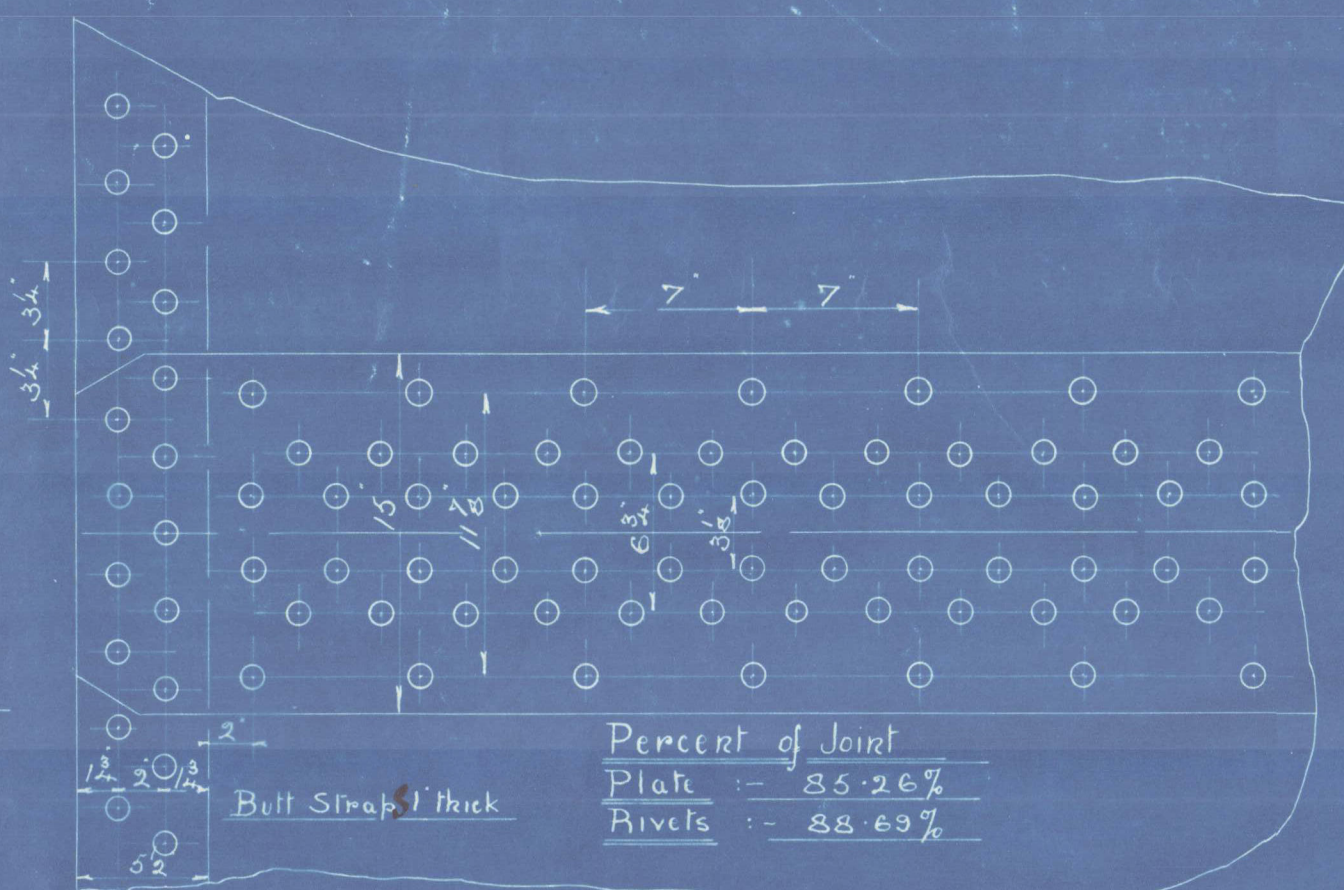 7" 7"
3¼"
3¼"
15"
11⅞"
6¾"
3⅛"
2"
1¾" 2" 1¾"
5½"
Butt Straps 1" thick
Percent of Joint
Plate :- 85.26%
Rivets :- 88.69%